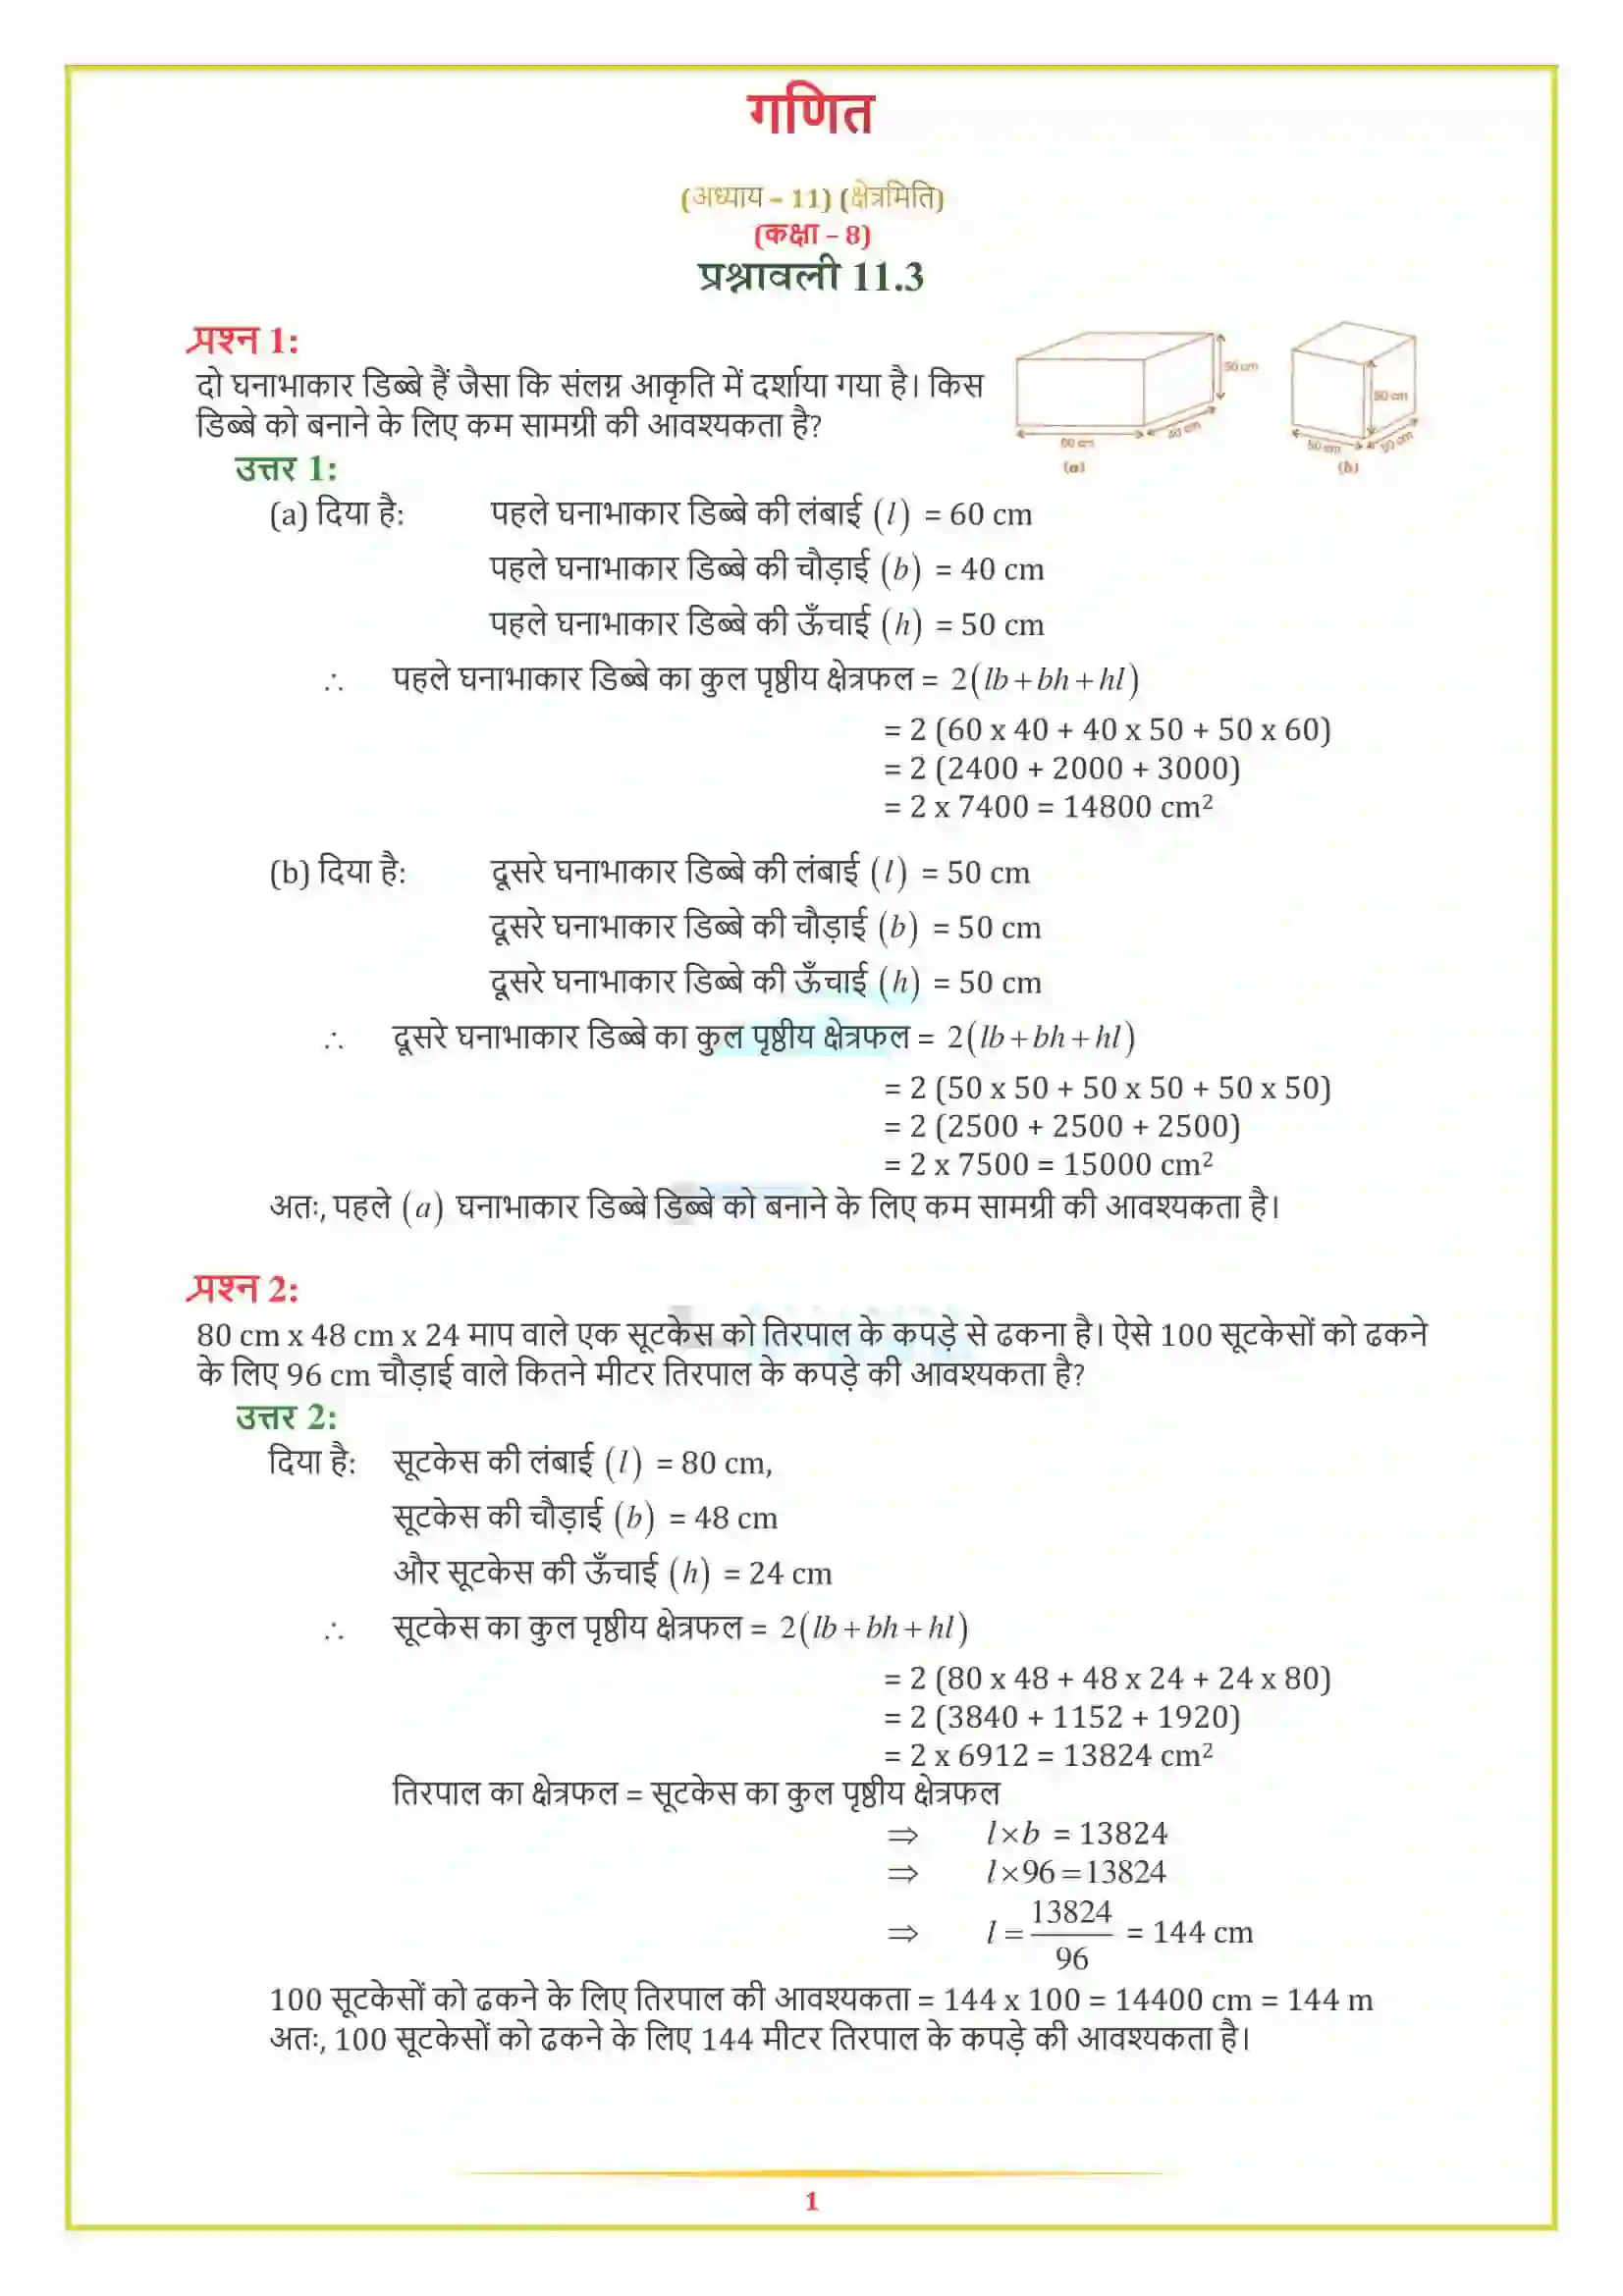 गणित
(अध्याय – 11) (क्षेत्रमिति)
(कक्षा – 8)
प्रश्नावली 11.3
प्रश्न 1:
दो घनाभाकार डिब्बे हैं जैसा कि संलग्न आकृति में दर्शाया गया है। किस
डिब्बे को बनाने के लिए कम सामग्री की आवश्यकता है?
50 cm
60 cm
40 cm
(a)
50 cm
50 cm
50 cm
(b)
उत्तर 1:
(a) दिया है: पहले घनाभाकार डिब्बे की लंबाई (l) = 60 cm
पहले घनाभाकार डिब्बे की चौड़ाई (b) = 40 cm
पहले घनाभाकार डिब्बे की ऊँचाई (h) = 50 cm
∴ पहले घनाभाकार डिब्बे का कुल पृष्ठीय क्षेत्रफल = 2(lb+bh+hl)
= 2 (60 x 40 + 40 x 50 + 50 x 60)
= 2 (2400 + 2000 + 3000)
= 2 x 7400 = 14800 cm²
(b) दिया है: दूसरे घनाभाकार डिब्बे की लंबाई (l) = 50 cm
दूसरे घनाभाकार डिब्बे की चौड़ाई (b) = 50 cm
दूसरे घनाभाकार डिब्बे की ऊँचाई (h) = 50 cm
∴ दूसरे घनाभाकार डिब्बे का कुल पृष्ठीय क्षेत्रफल = 2(lb+bh+hl)
= 2 (50 x 50 + 50 x 50 + 50 x 50)
= 2 (2500 + 2500 + 2500)
= 2 x 7500 = 15000 cm²
अतः, पहले (a) घनाभाकार डिब्बे डिब्बे को बनाने के लिए कम सामग्री की आवश्यकता है।
प्रश्न 2:
80 cm x 48 cm x 24 माप वाले एक सूटकेस को तिरपाल के कपड़े से ढकना है। ऐसे 100 सूटकेसों को ढकने
के लिए 96 cm चौड़ाई वाले कितने मीटर तिरपाल के कपड़े की आवश्यकता है?
उत्तर 2:
दिया है: सूटकेस की लंबाई (l) = 80 cm,
सूटकेस की चौड़ाई (b) = 48 cm
और सूटकेस की ऊँचाई (h) = 24 cm
∴ सूटकेस का कुल पृष्ठीय क्षेत्रफल = 2(lb+bh+hl)
= 2 (80 x 48 + 48 x 24 + 24 x 80)
= 2 (3840 + 1152 + 1920)
= 2 x 6912 = 13824 cm²
तिरपाल का क्षेत्रफल = सूटकेस का कुल पृष्ठीय क्षेत्रफल
⇒ l×b = 13824
⇒ l×96=13824
⇒ l = 13824/96 = 144 cm
100 सूटकेसों को ढकने के लिए तिरपाल की आवश्यकता = 144 x 100 = 14400 cm = 144 m
अतः, 100 सूटकेसों को ढकने के लिए 144 मीटर तिरपाल के कपड़े की आवश्यकता है।
1